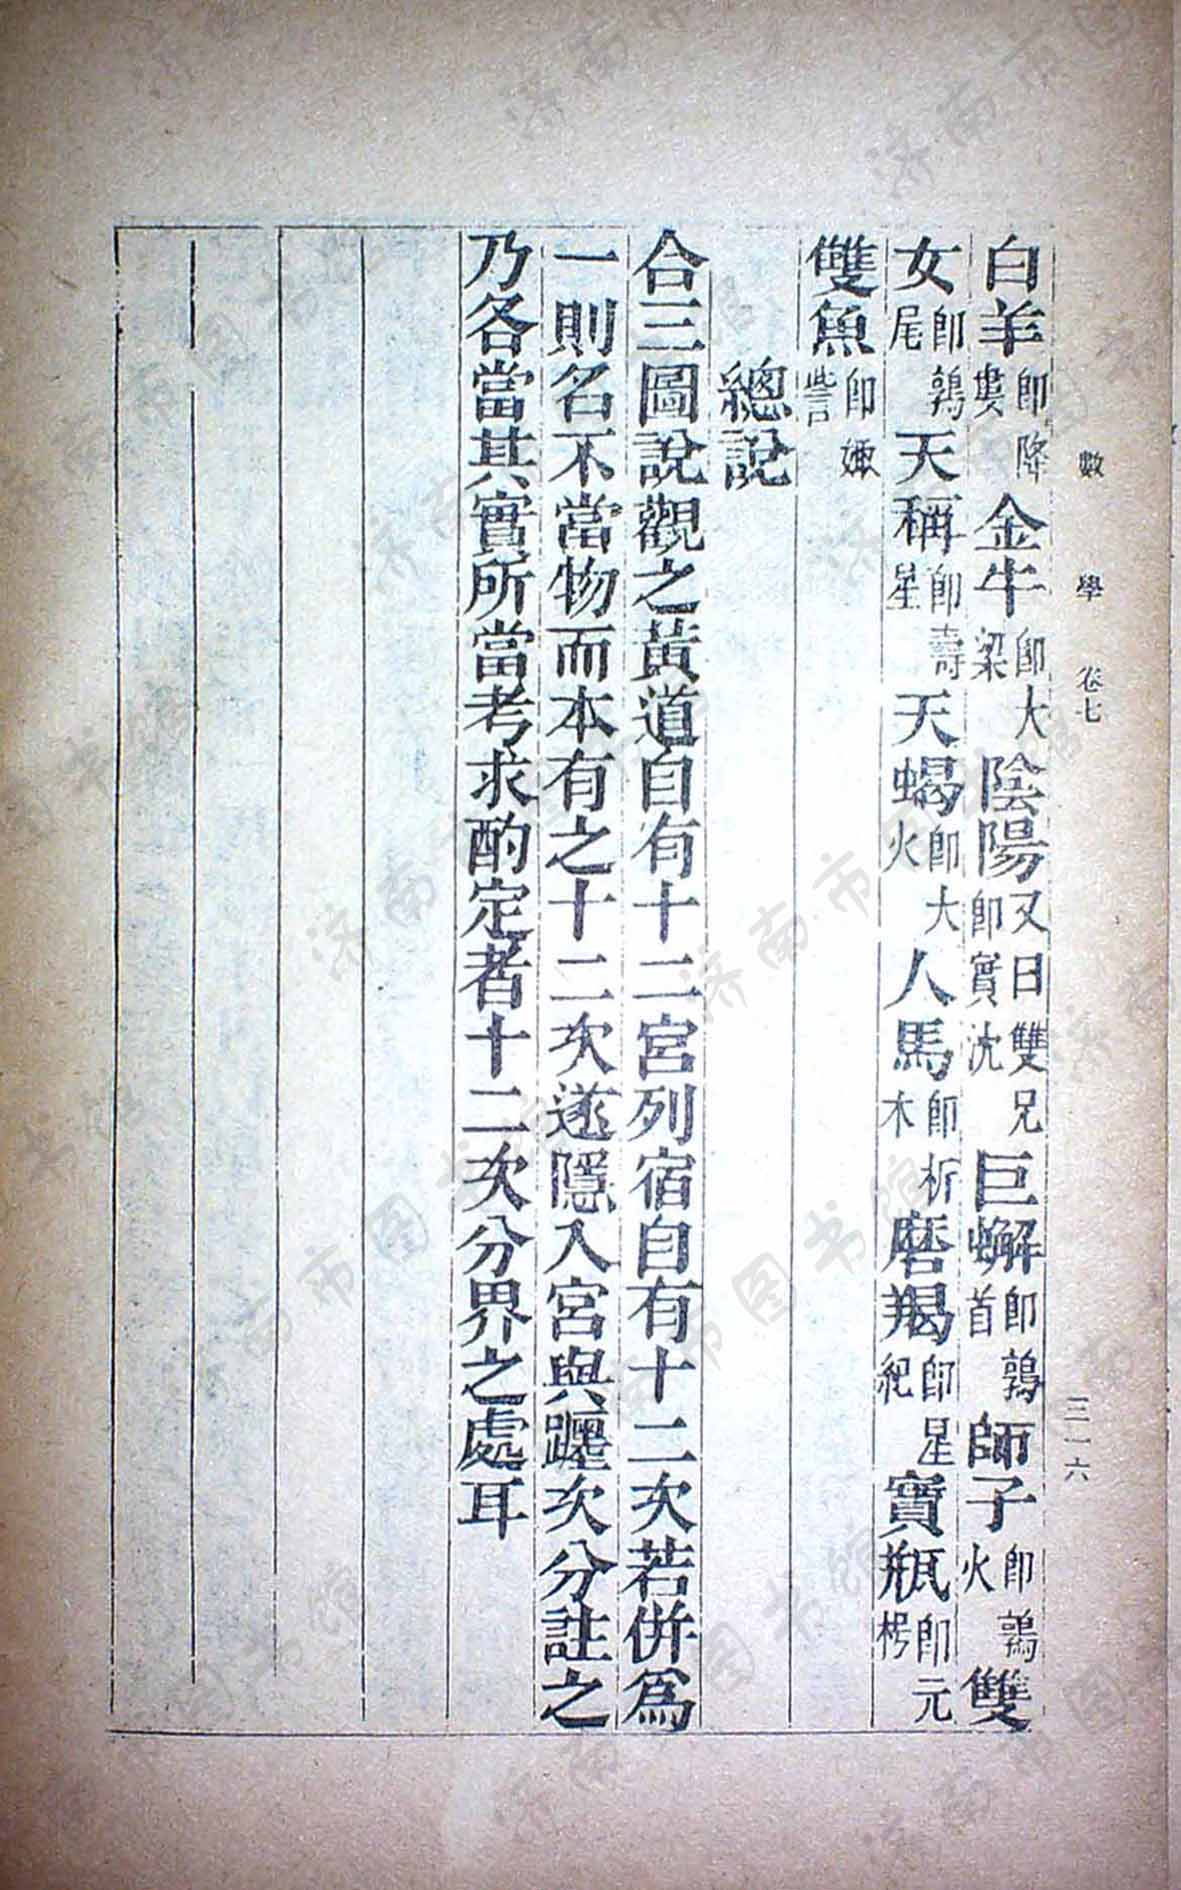 數學 卷七 三一六
白羊即降婁金牛即大梁陰陽又曰雙兄即實沈巨蠏即鶉首師子即鶉火雙
女即鶉尾天稱即壽星天蝎即大火人馬即析木磨羯即星紀寶瓶即元枵
雙魚即娵訾
總說
合三圖說觀之黃道自有十二宮列宿自有十二次若併爲
一則名不當物而本有之十二次遂隱入宮與躔次分註之
乃各當其實所當考求酌定者十二次分界之處耳
济南市图书馆